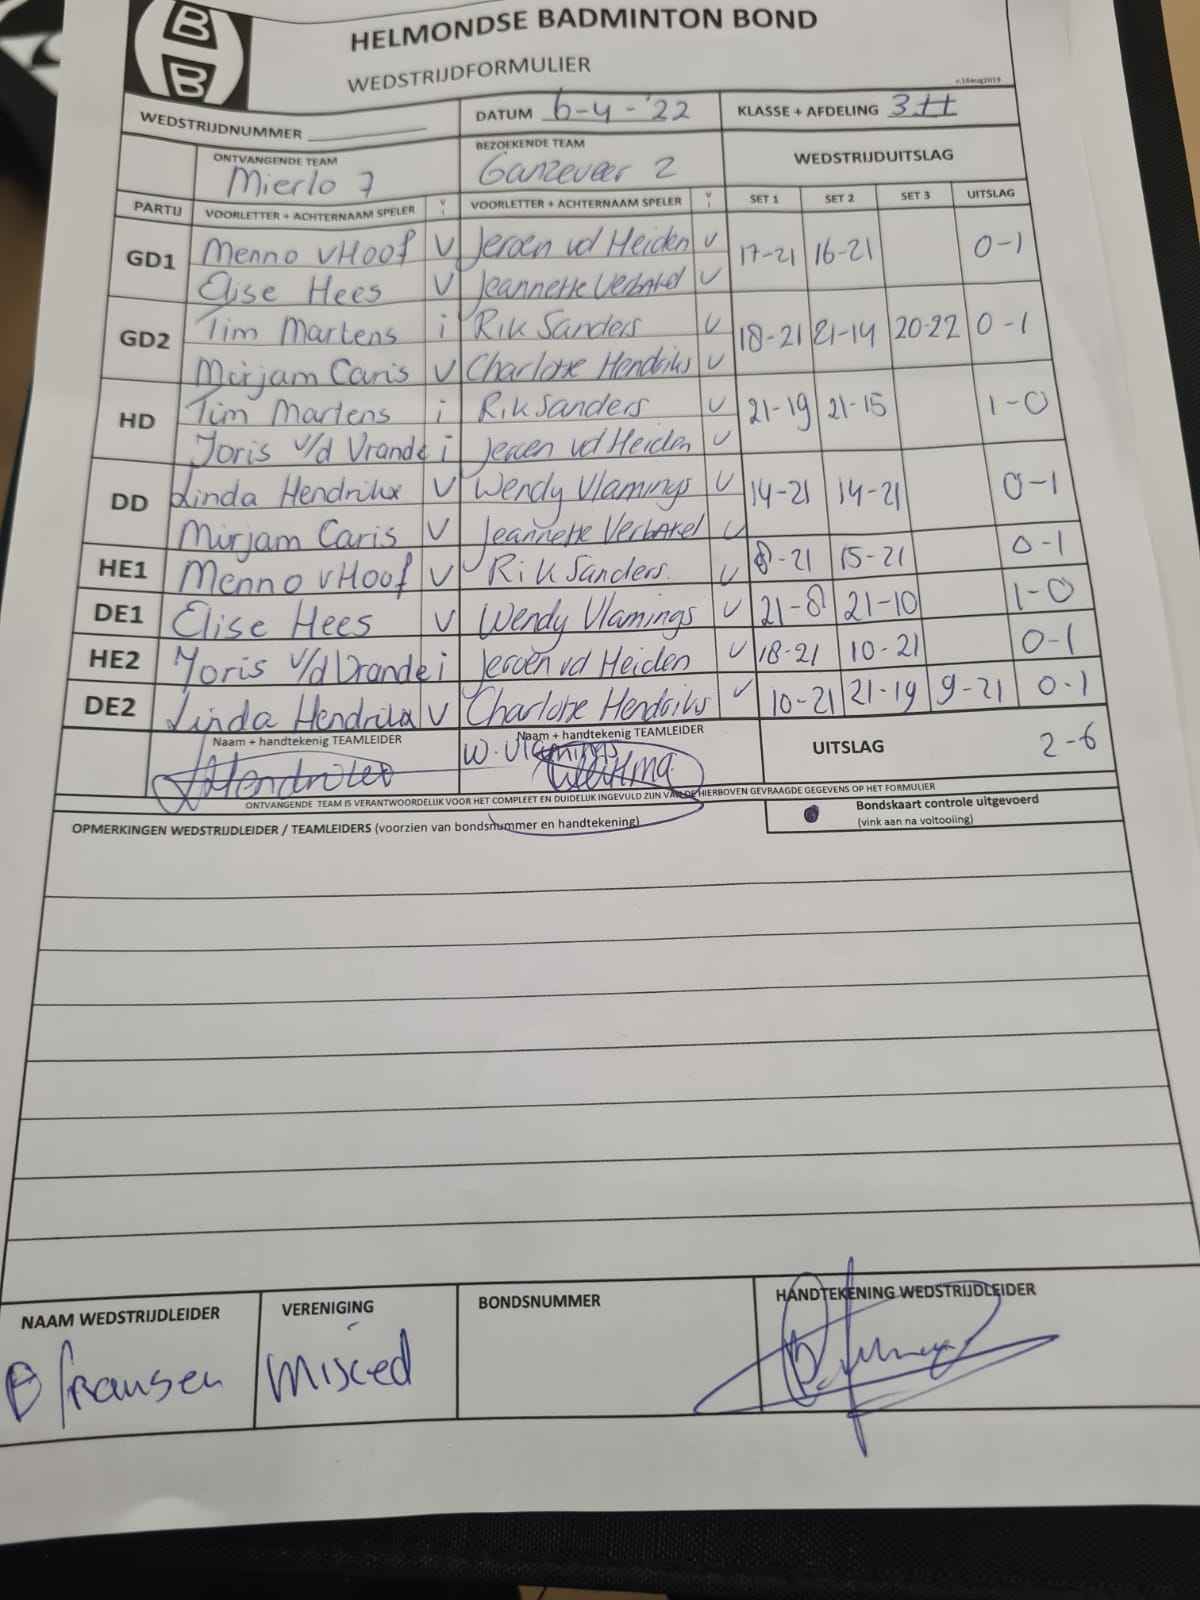 B
B
HELMONDSE BADMINTON BOND
WEDSTRIJDFORMULIER
v.16aug2019
WEDSTRIJDNUMMER DATUM 6-4-'22 KLASSE + AFDELING 3II
ONTVANGENDE TEAM BEZOEKENDE TEAM WEDSTRIJDUITSLAG
Mierlo 7 Ganzeveer 2
PARTIJ VOORLETTER + ACHTERNAAM SPELER V I VOORLETTER + ACHTERNAAM SPELER V I SET 1 SET 2 SET 3 UITSLAG
GD1 Menno vHoof V Jeroen vd Heiden V 17-21 16-21 0-1
Elise Hees V Jeannette Verbakel V
GD2 Tim Martens i Rik Sanders V 18-21 21-14 20-22 0-1
Mirjam Caris V Charlotte Hendriks V
HD Tim Martens i Rik Sanders V 21-19 21-15 1-0
Joris v/d Vrande i Jeroen vd Heiden V
DD Linda Hendrikx V Wendy Vlamings V 14-21 14-21 0-1
Mirjam Caris V Jeannette Verbakel V
HE1 Menno vHoof V Rik Sanders V 8-21 15-21 0-1
DE1 Elise Hees V Wendy Vlamings V 21-8 21-10 1-0
HE2 Joris v/d Vrande i Jeroen vd Heiden V 18-21 10-21 0-1
DE2 Linda Hendrikx V Charlotte Hendriks V 10-21 21-19 9-21 0-1
Naam + handtekenig TEAMLEIDER Naam + handtekenig TEAMLEIDER UITSLAG 2-6
W. Vlamings
ONTVANGENDE TEAM IS VERANTWOORDELIJK VOOR HET COMPLEET EN DUIDELIJK INGEVULD ZIJN VAN DE HIERBOVEN GEVRAAGDE GEGEVENS OP HET FORMULIER
OPMERKINGEN WEDSTRIJDLEIDER / TEAMLEIDERS (voorzien van bondsnummer en handtekening)
Bondskaart controle uitgevoerd
(vink aan na voltooiing)
NAAM WEDSTRIJDLEIDER VERENIGING BONDSNUMMER HANDTEKENING WEDSTRIJDLEIDER
B fransen Mixed